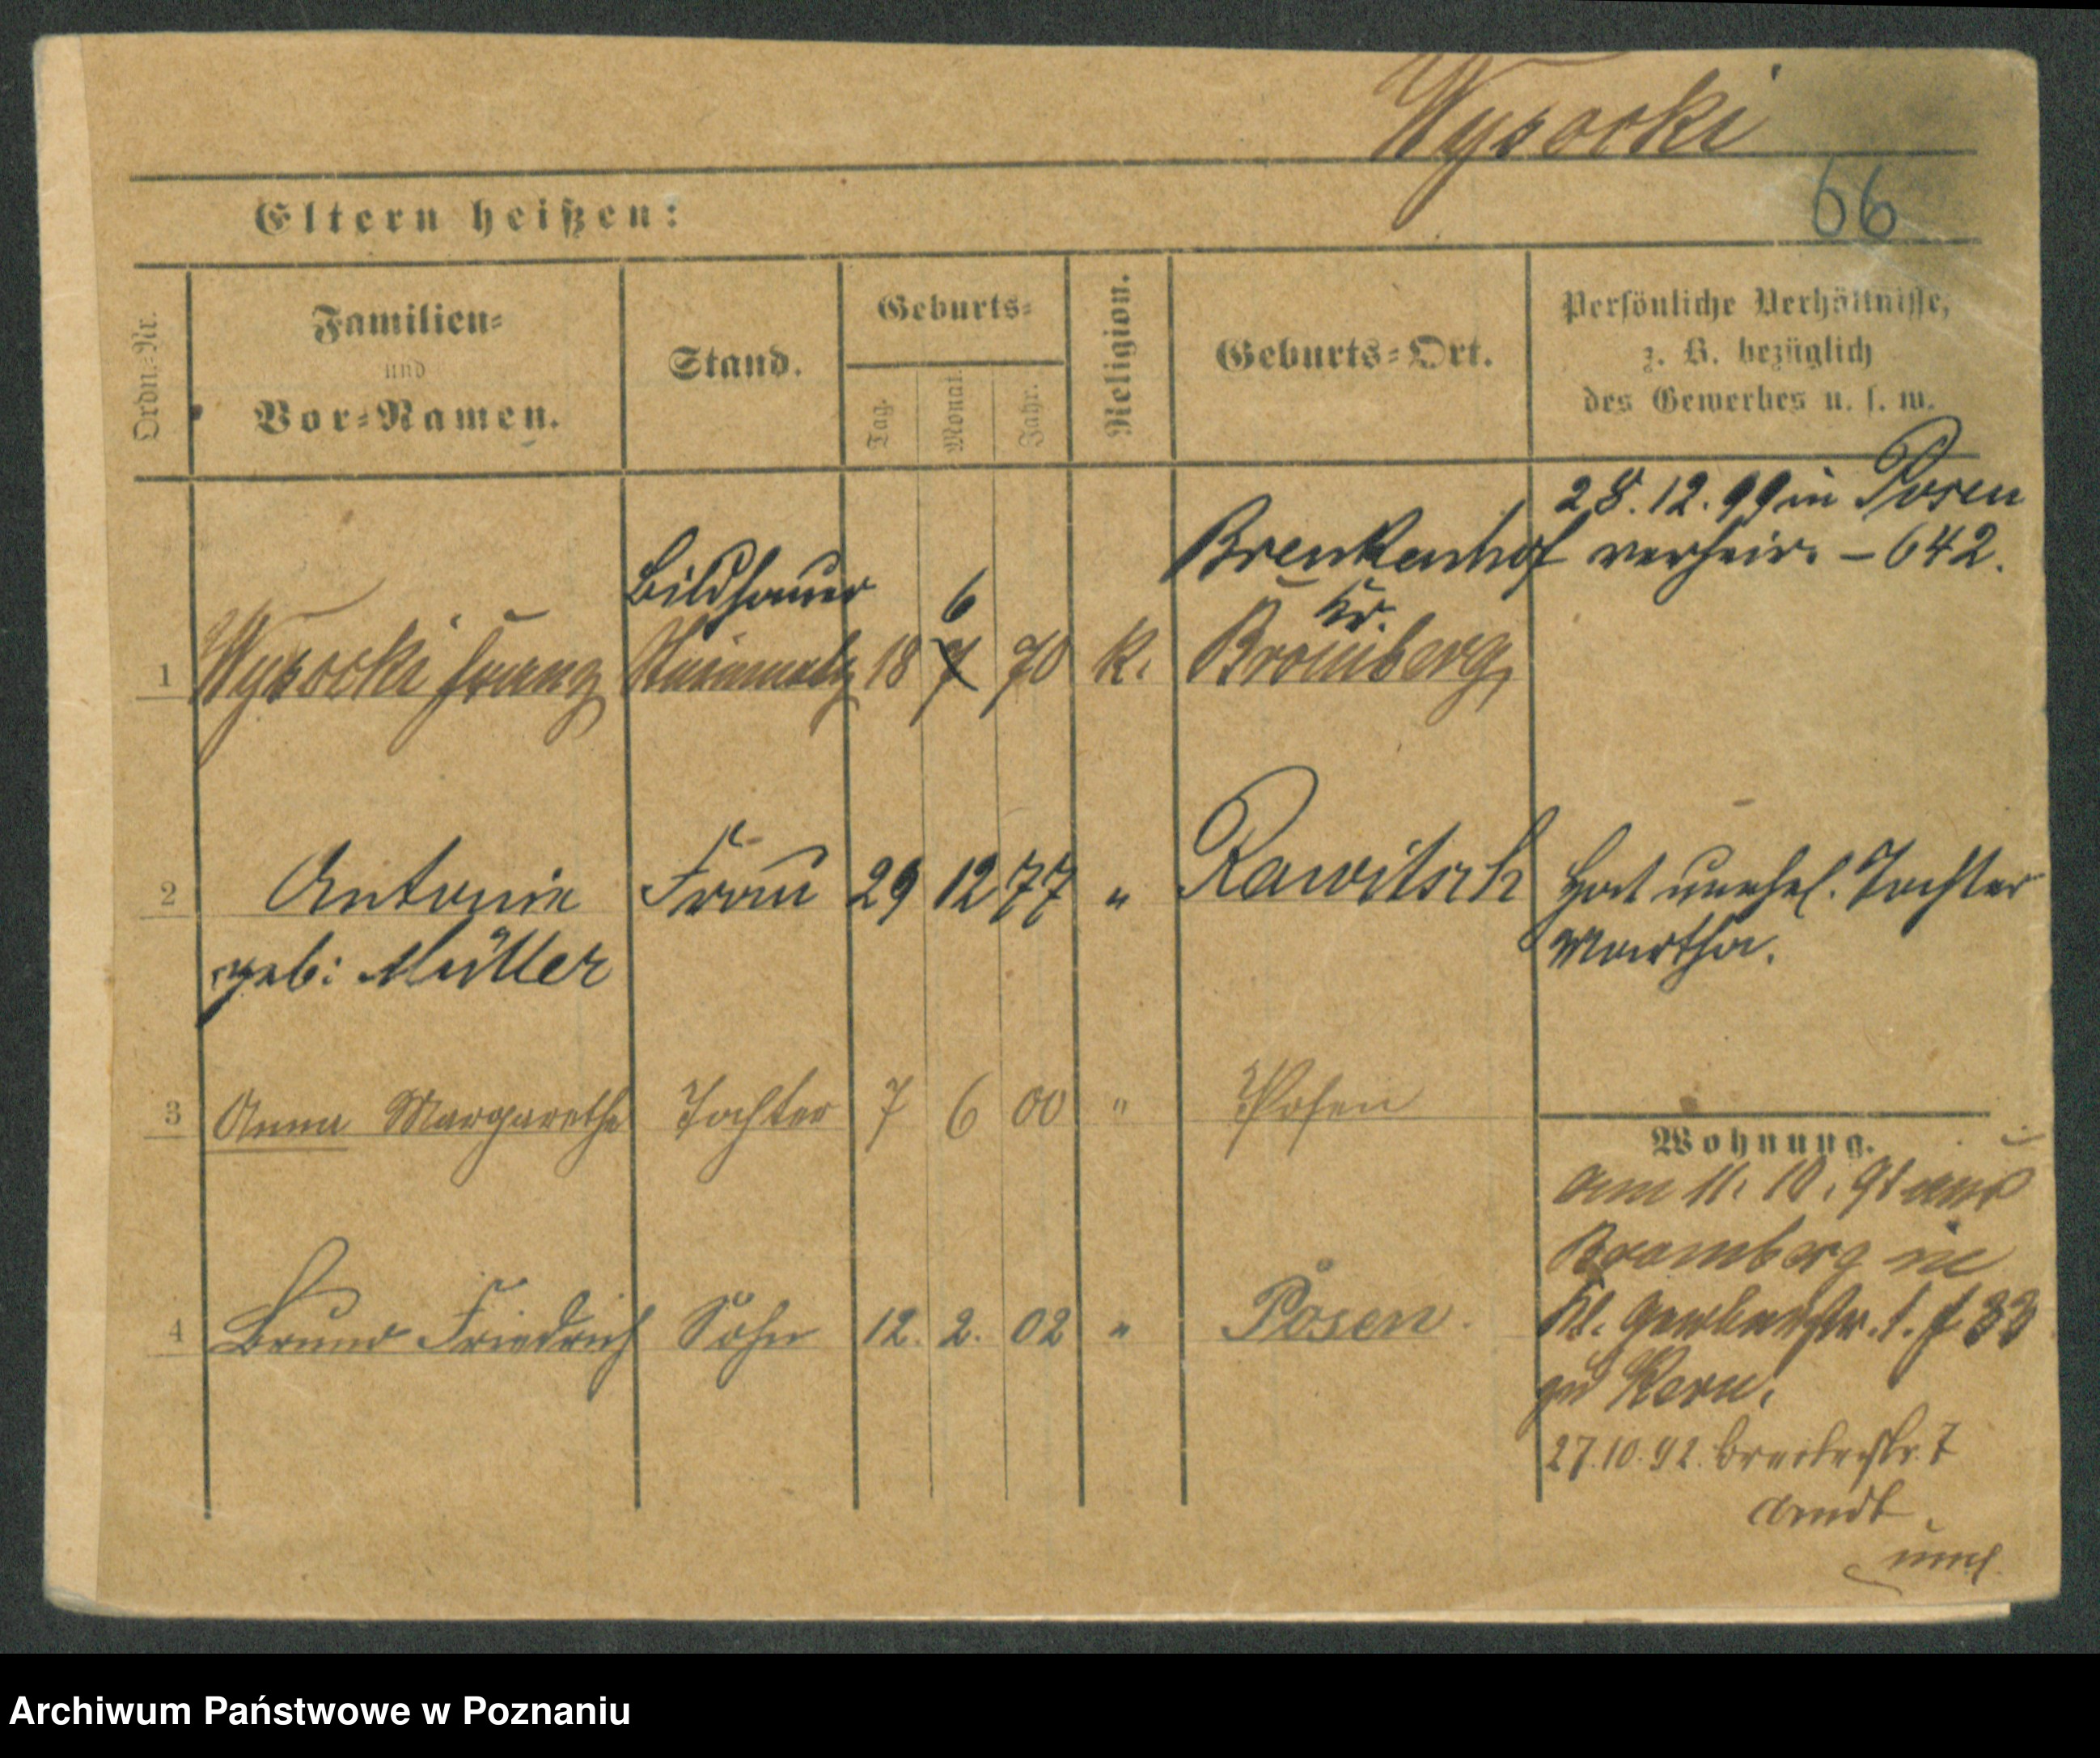 Wysocki
66
Eltern heißen:
Ordn.=Nr.
Familien=
und
Vor=Namen.
Stand.
Geburts=
Tag.
Monat.
Jahr.
Religion.
Geburts=Ort.
Persönliche Verhältnisse,
z. B. bezüglich
des Gewerbes u. s. w.
28. 12. 99 in Posen
verheir. – 642.
Bildhauer
6
Brenkenhof
Kr.
1 Wysocki Franz Steinmetz 18 7 70 k. Bromberg
2 Antonie Frau 29 12 77 " Rawitsch
geb: Müller
Hat unehel. Tochter
Martha.
3 Anna Margarethe Tochter 7 6 00 " Posen
4 Bruno Friedrich Sohn 12. 2. 02 " Posen.
Wohnung.
am 11. 10. 91 aus
Bromberg in
Kl. Gerberstr. 33
Kern.
27. 10. 92. Breitestr. 7
Arndt
Archiwum Państwowe w Poznaniu